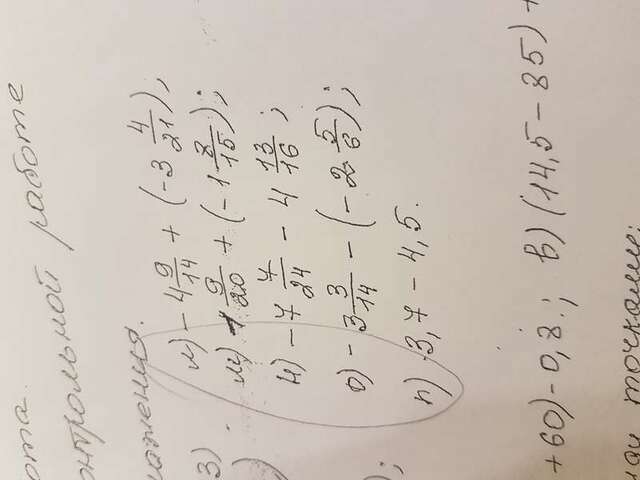 ота.
онтрольной работе
ражения.
3)
л) - 4 9/14 + (-3 4/21);
м) 1 9/20 + (-1 8/15);
н) - 7 7/24 - 4 13/16;
о) - 3 3/14 - (-2 5/6);
);
п) 3,7 - 4,5.
+60) - 0,8.; в) (14,5 - 85) +
точками: